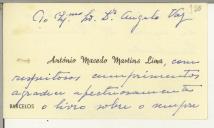 Ao Exmo Sr. Dr. Angelo Vaz
António Macedo Martins Lima, com
respeitosos cumprimentos
agradece afectuosamente
BARCELOS o livro sobre o sempre